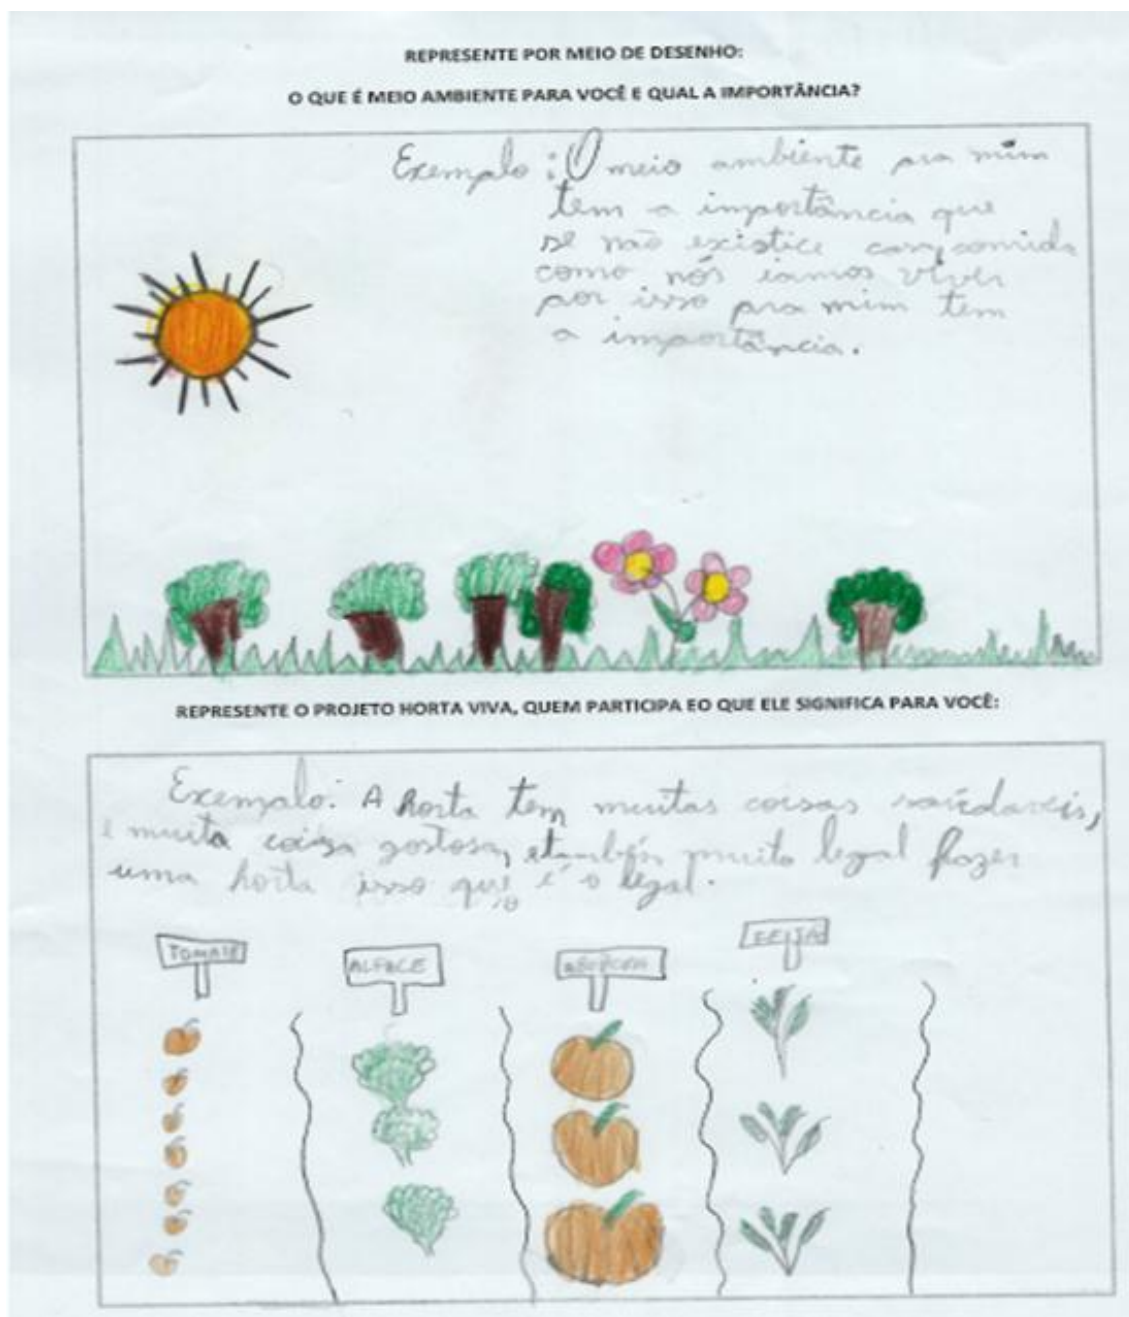 REPRESENTE POR MEIO DE DESENHO:
O QUE É MEIO AMBIENTE PARA VOCÊ E QUAL A IMPORTÂNCIA?
Exemplo: O meio ambiente pra mim
tem a importância que
se não existice comida
como nós iamos viver
por isso pra mim tem
a importância.
REPRESENTE O PROJETO HORTA VIVA, QUEM PARTICIPA EO QUE ELE SIGNIFICA PARA VOCÊ:
Exemplo: A horta tem muitas coisas saúdaveis,
e muita coisa gostosa, etambén muito legal fazer
uma horta isso que é o legal.
TOMATE
ALFACE
ABOBORA
FEIJÃO